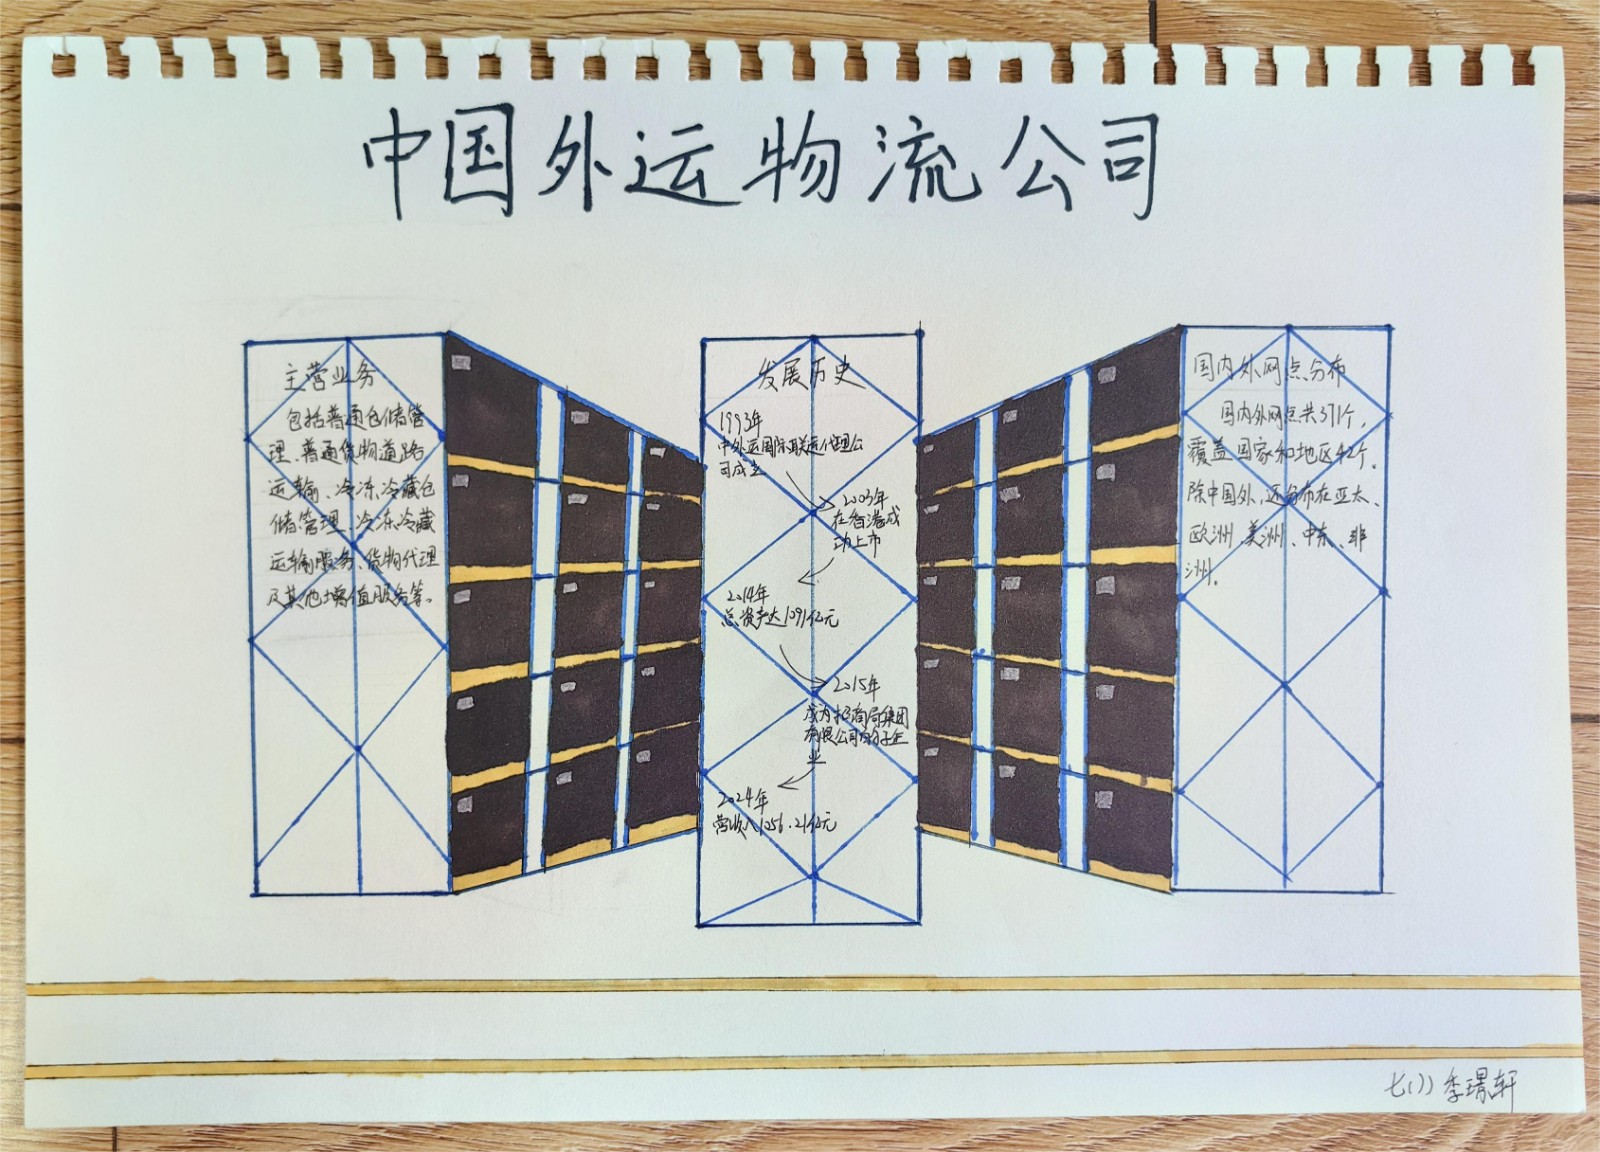 中国外运物流公司
主营业务
包括普通仓储管
理、普通货物道路
运输、冷冻冷藏仓
储管理、冷冻冷藏
运输服务、货物代理
及其他增值服务等。
发展历史
1993年
中外运国际联运代理公
司成立
2003年
在香港成
功上市
2014年
总资产达1091亿元
2015年
成为招商局集团
有限公司的子企
业
2024年
营收入1056.21亿元
国内外网点分布
国内外网点共371个,
覆盖国家和地区42个。
除中国外,还分布在亚太、
欧洲、美洲、中东、非
洲。
七(1) 季璟轩